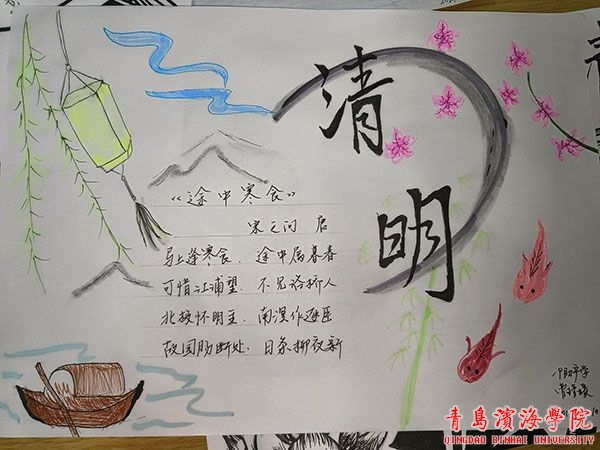 清明
《途中寒食》
宋之问 唐
马上逢寒食，途中属暮春
可惜江浦望，不见洛桥人
北极怀明主，南溟作逐臣
故园肠断处，日条柳夜新
青岛滨海学院
QINGDAO BINHAI UNIVERSITY